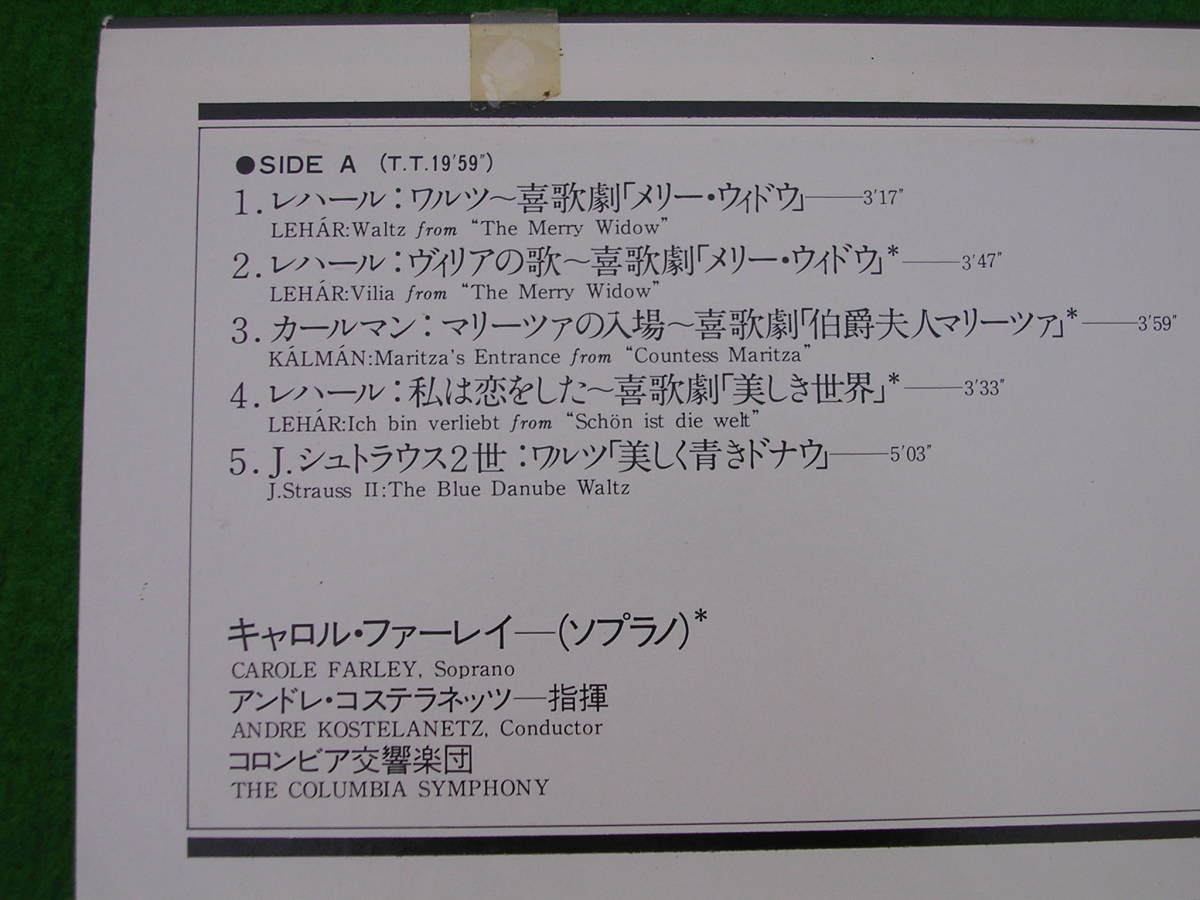 ●SIDE A (T.T.19′59″)
1. レハール：ワルツ〜喜歌劇「メリー・ウィドウ」――3′17″
LEHÁR:Waltz from “The Merry Widow”
2. レハール：ヴィリアの歌〜喜歌劇「メリー・ウィドウ」*――3′47″
LEHÁR:Vilia from “The Merry Widow”
3. カールマン：マリーツァの入場〜喜歌劇「伯爵夫人マリーツァ」*――3′59″
KÁLMÁN:Maritza's Entrance from “Countess Maritza”
4. レハール：私は恋をした〜喜歌劇「美しき世界」*――3′33″
LEHÁR:Ich bin verliebt from “Schön ist die welt”
5. J.シュトラウス2世：ワルツ「美しく青きドナウ」――5′03″
J.Strauss II:The Blue Danube Waltz
キャロル・ファーレイ―(ソプラノ)*
CAROLE FARLEY, Soprano
アンドレ・コステラネッツ―指揮
ANDRE KOSTELANETZ, Conductor
コロンビア交響楽団
THE COLUMBIA SYMPHONY